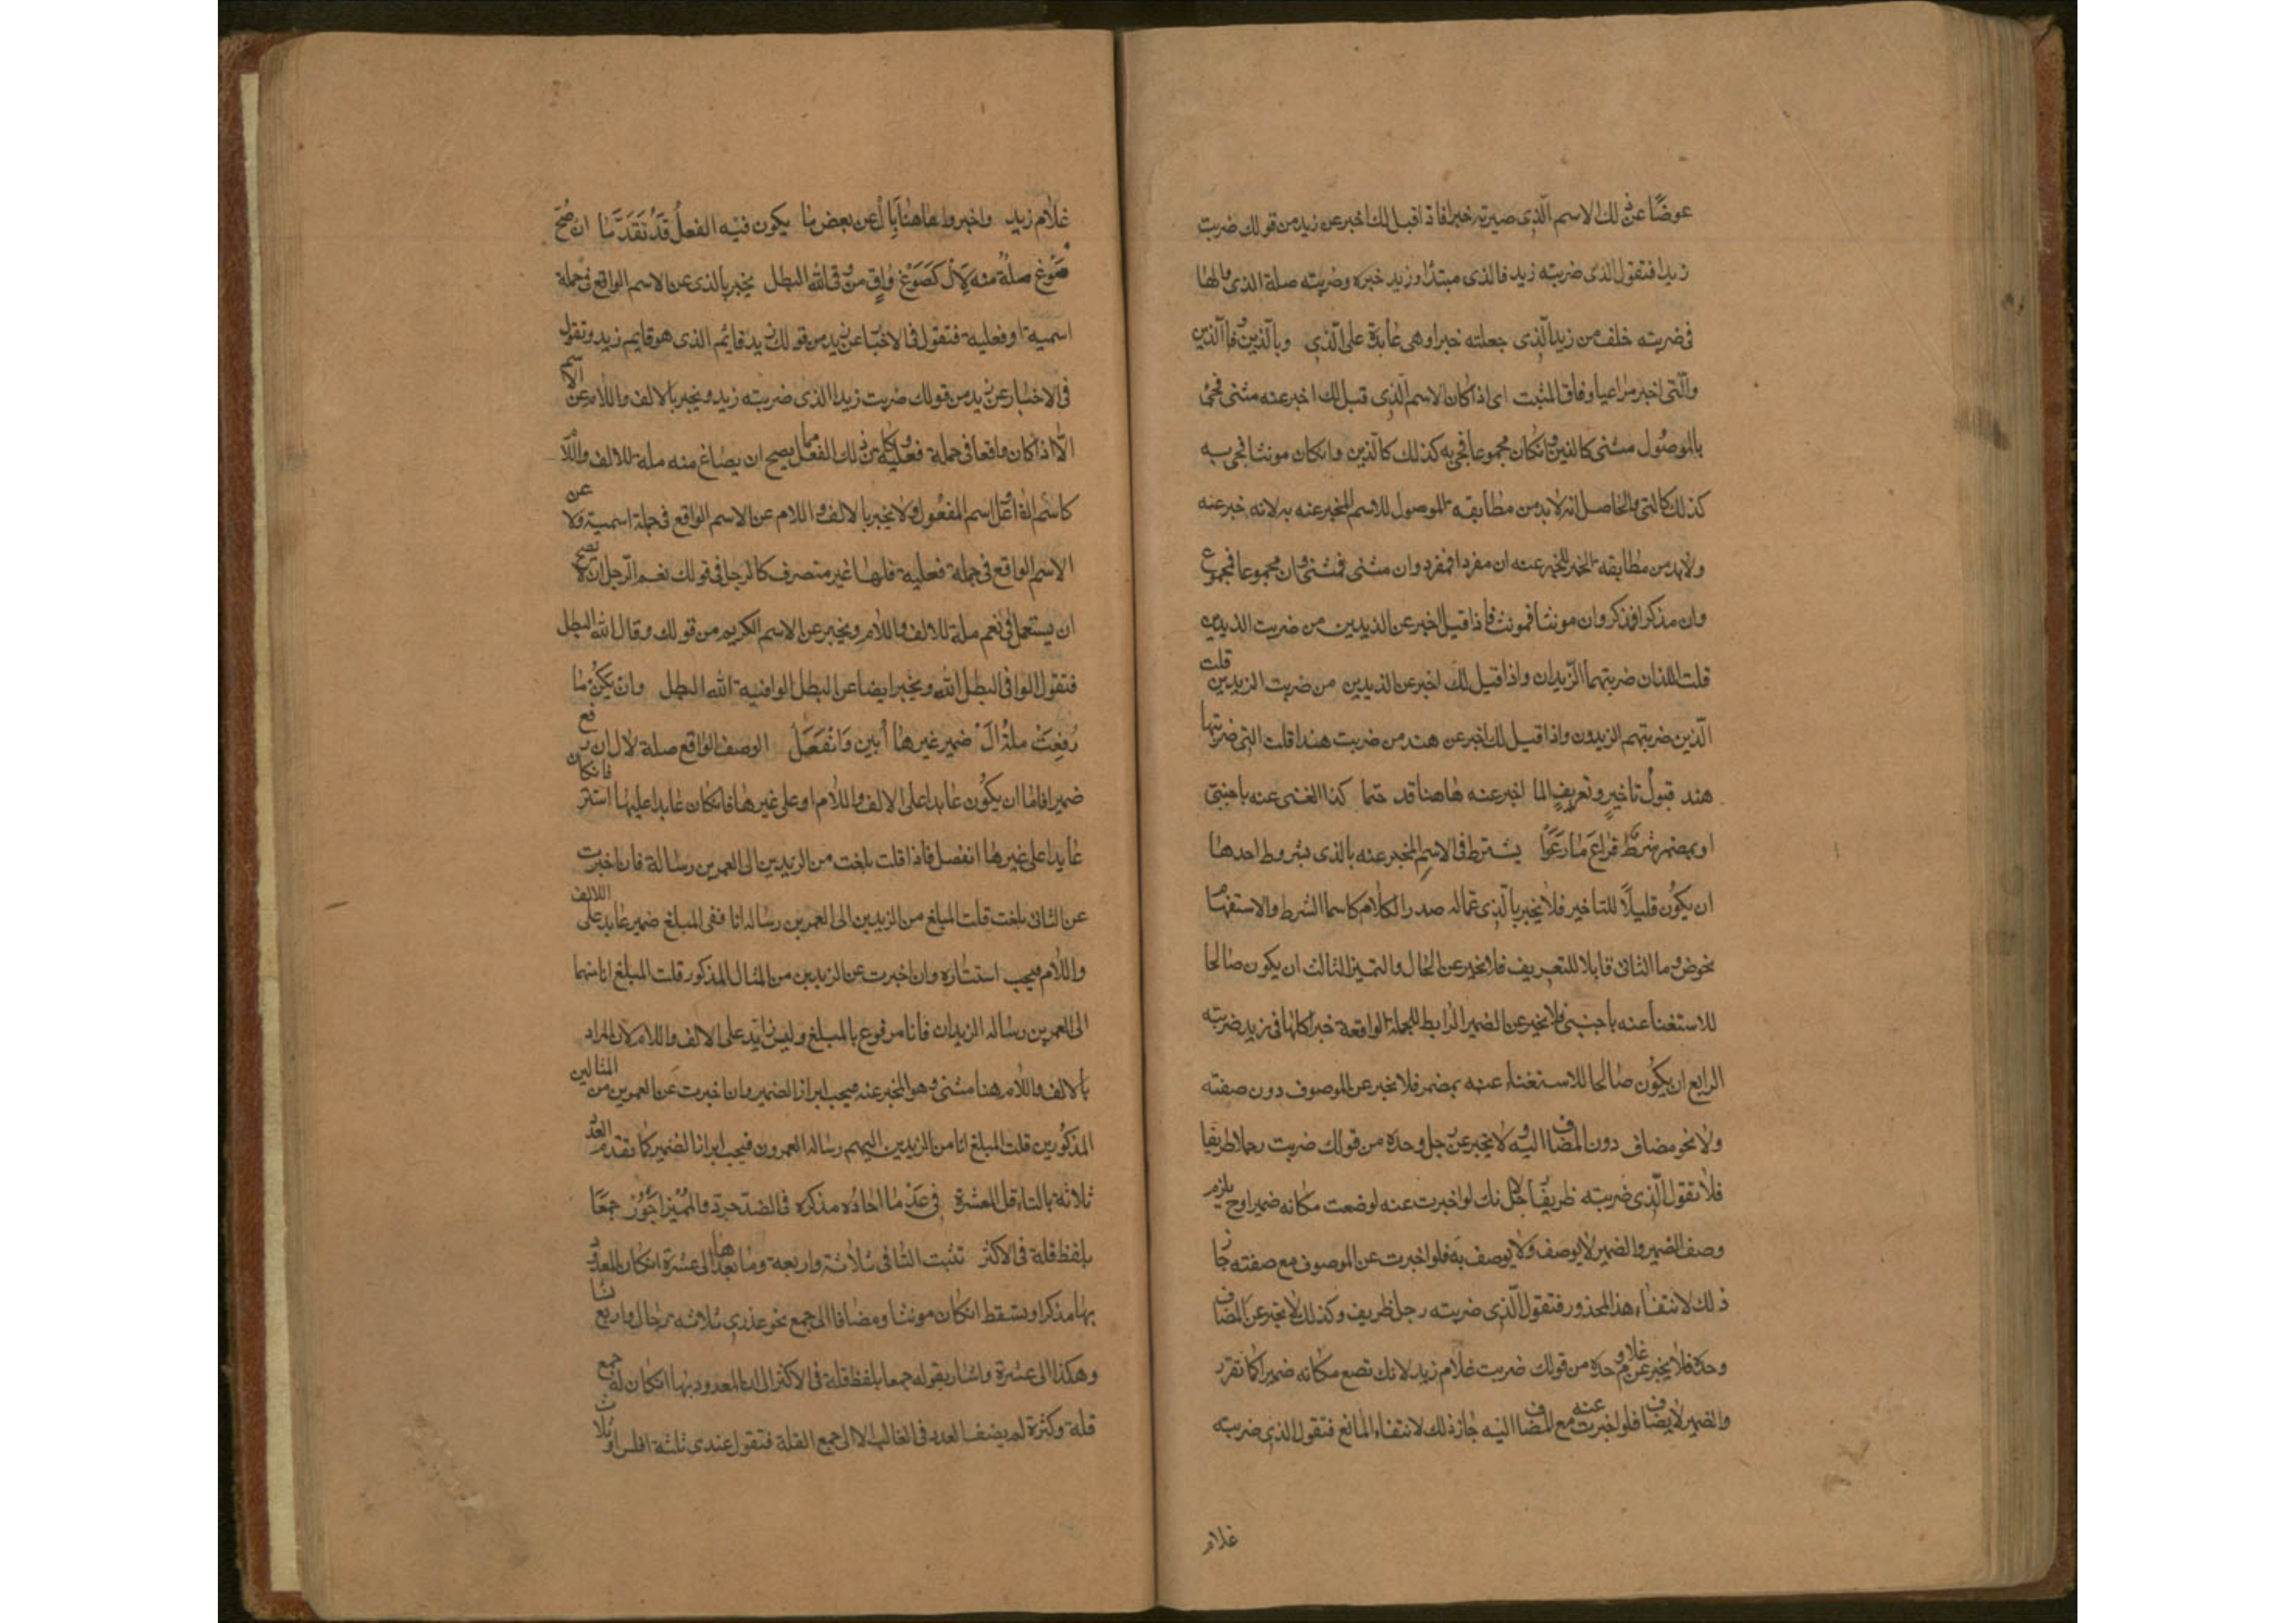 عوضًا عن ذلك الاسم الّذى صيرته خبرا فاذا قيل لك اخبر عن زيد من قولك ضربت
زيدا فتقول الذى ضربته زيد فالذى مبتدا وزيد خبره وضربته صلة الذى والها
فى ضربته خلف من زيد الّذى جعلته خبرا وهى عايدة على الّذى وباللّذين والذين
والّتى اخبر مراعيا وفاق المثبت اى اذا كان الاسم الّذى قيل لك اخبر عنه مثنى فجئ
بالموصول مثنى كالذين وانكان مجموعا فجئ به كذلك كالّذين وانكان مونثا فجئ به
كذلك كالتى والحاصل انه لا بد من مطابقة الموصول للاسم المخبر عنه به لانه خبر عنه
ولا بد من مطابقة الخبر للمخبر عنه ان مفردا فمفرد وان مثنى فمثنى وان مجموعا فمجموع
وان مذكرا فمذكر وان مونثا فمونث فاذا قيل اخبر عن الزيدين من ضربت الزيدين
قلت اللذان ضربتهما الزيدان واذا قيل لك اخبر عن الزيدين من ضربت الزيدين قلت
الّذين ضربتهم الزيدون واذا قيل لك اخبر عن هند من ضربت هندا قلت التى ضربتها
هند قبول تاخير وتعريف لما اخبر عنه هاهنا قد حتما كذا الغنى عنه باجنبىّ
او بمضمر شرط فراع ما رعوا يشترط فى الاسم المخبر عنه بالذى شروط احدها
ان يكون قابلا للتاخير فلا يخبر بالّذى عما له صدر الكلام كاسما الشرط والاستفهام
نحو من وما الثانى قابلا للتعريف فلا يخبر عن الحال والتميز الثالث ان يكون صالحا
للاستغنا عنه باجنبى فلا يخبر عن الضمير الرابط للجملة الواقعة خبرا كالها فى زيد ضربته
الرابع ان يكون صالحا للاستغناء عنه بمضمر فلا يخبر عن الموصوف دون صفته
ولا نحو مضاف دون المضاف اليه ولا يخبر عن رجل وحده من قولك ضربت رجلا ظريفا
فلا تقول الّذى ضربته ظريفا رجل لانك لو اخبرت عنه لوضعت مكانه ضميرا وح يلزم
وصف الضمير والضمير لا يوصف ولا يوصف به فلو اخبرت عن الموصوف مع صفته جاز
ذلك لانتفاء هذا المحذور فتقول الّذى ضربته رجل ظريف وكذلك لا يخبر عن المضاف
وحده فلا يخبر عن غلام وحده من قولك ضربت غلام زيد لانك تضع مكانه ضميرا كما تقرر
والضمير لا يضاف فلو اخبرت عنه مع المضاف اليه جاز ذلك لانتفاء المانع فتقول الذى ضربته
غلام
غلام زيد واخبروا هاهنا بال عن بعض ما يكون فيه الفعل قد تقدّما ان صحّ
صوغ صلة منه لال كصوغ واق من وقى الله البطل يخبر بالذى عن الاسم الواقع فى جملة
اسمية او فعلية فتقول فى الاخبار عن زيد من قولك زيد قائم الذى هو قايم زيد وتقول
فى الاخبار عن زيد من قولك ضربت زيدا الذى ضربته زيد ويخبر بالالف واللام عن الاسم
الّا اذا كان واقعا فى جملة فعلية وكان ذلك الفعل مما يصح ان يصاغ منه صلة للالف واللام
كاسم الفاعل واسم المفعول ولا يخبر بالالف واللام عن الاسم الواقع فى جملة اسمية ولا عن
الاسم الواقع فى جملة فعلية فعلها غير متصرف كالرجل فى قولك نعم الرّجل اذ لا يصح
ان يستعمل فى نعم صلة للالف واللام ويخبر عن الاسم الكريم من قولك وقال الله البطل
فتقول الواقى البطل الله ويخبر ايضا عن البطل الواقيه الله البطل وان يكن ما
رفعت صلة ال ضمير غيرها ابين وانفصل الوصف الواقع صلة لال ان رفع
ضميرا فاما ان يكون عايدا على الالف واللام او على غيرها فانكان عايدا عليها استتر فانكان
عايدا على غيرها انفصل فاذا قلت بلغت من الزيدين الى العمرين رسالة فان اخبرت
عن التائ بلغت قلت المبلغ من الزيدين الى العمرين رساله انا ففى المبلغ ضمير عايد على الالف
واللام فيجب استتاره وان اخبرت عن الزيدين من المثال المذكور قلت المبلغ انا منهما
الى العمرين رساله الزيدان فانا مرفوع بالمبلغ وليس عايد على الالف واللام لان المراد
بالالف واللام هنا مثنى وهو المخبر عنه فيجب ابراز الضمير وان اخبرت عن العمرين من المثالين
المذكورين قلت المبلغ انا من الزيدين اليهم رساله العمرون فيجب ابراز الضمير كما تقدم العدد
ثلاثة بالتاء قل للعشرة فى عدّ ما احاده مذكره فى الضد جرد والمميز اجرر جمعا
بلفظ قلة فى الاكثر تثبت التا فى ثلاثة واربعة وما بعدها الى عشرة انكان المعدود
بها مذكرا وتسقط انكان مونثا ومضافا الى جمع نحو عندى ثلاثه رجال واربع نسا
وهكذا الى عشرة واشار بقوله جمعا بلفظ قلة فى الاكثر الى ان المعدود بها انكان له جمع
قلة وكثرة لم يضف العدد فى الغالب الا الى جمع القلة فتقول عندى ثلثة افلس وثلاث